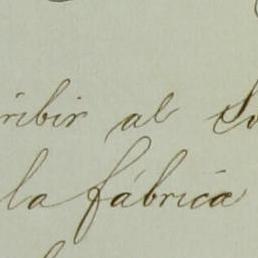 ribir al
la fábrica